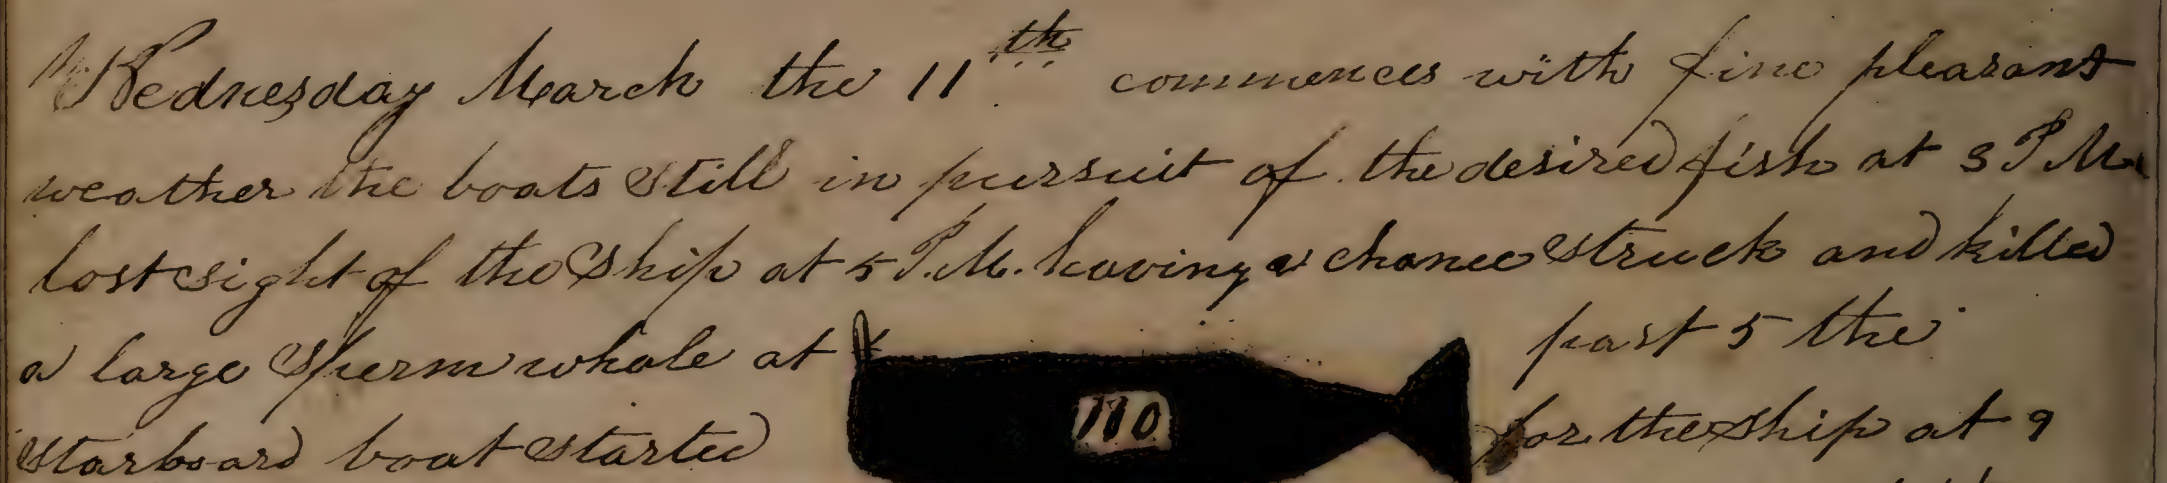 Wednesday March the 11th commences with fine pleasant
weather the boats still in pursuit of the desired fish at 3 P.M.
lost sight of the Ship at 5 P.M. having a chance struck and killed
a large Sperm whale at past 5 the
110
starboard boat started for the ship at 9